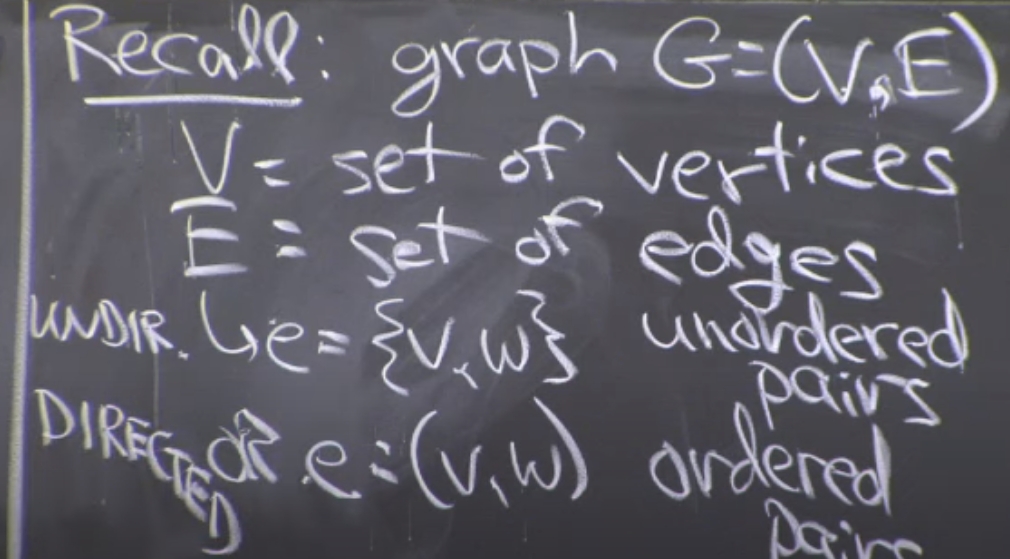 Recall: graph G=(V,E)
V = set of vertices
E = set of edges
UNDIR. ↳e={v,w} unordered
pairs
DIRECTED OR e=(v,w) ordered
pairs